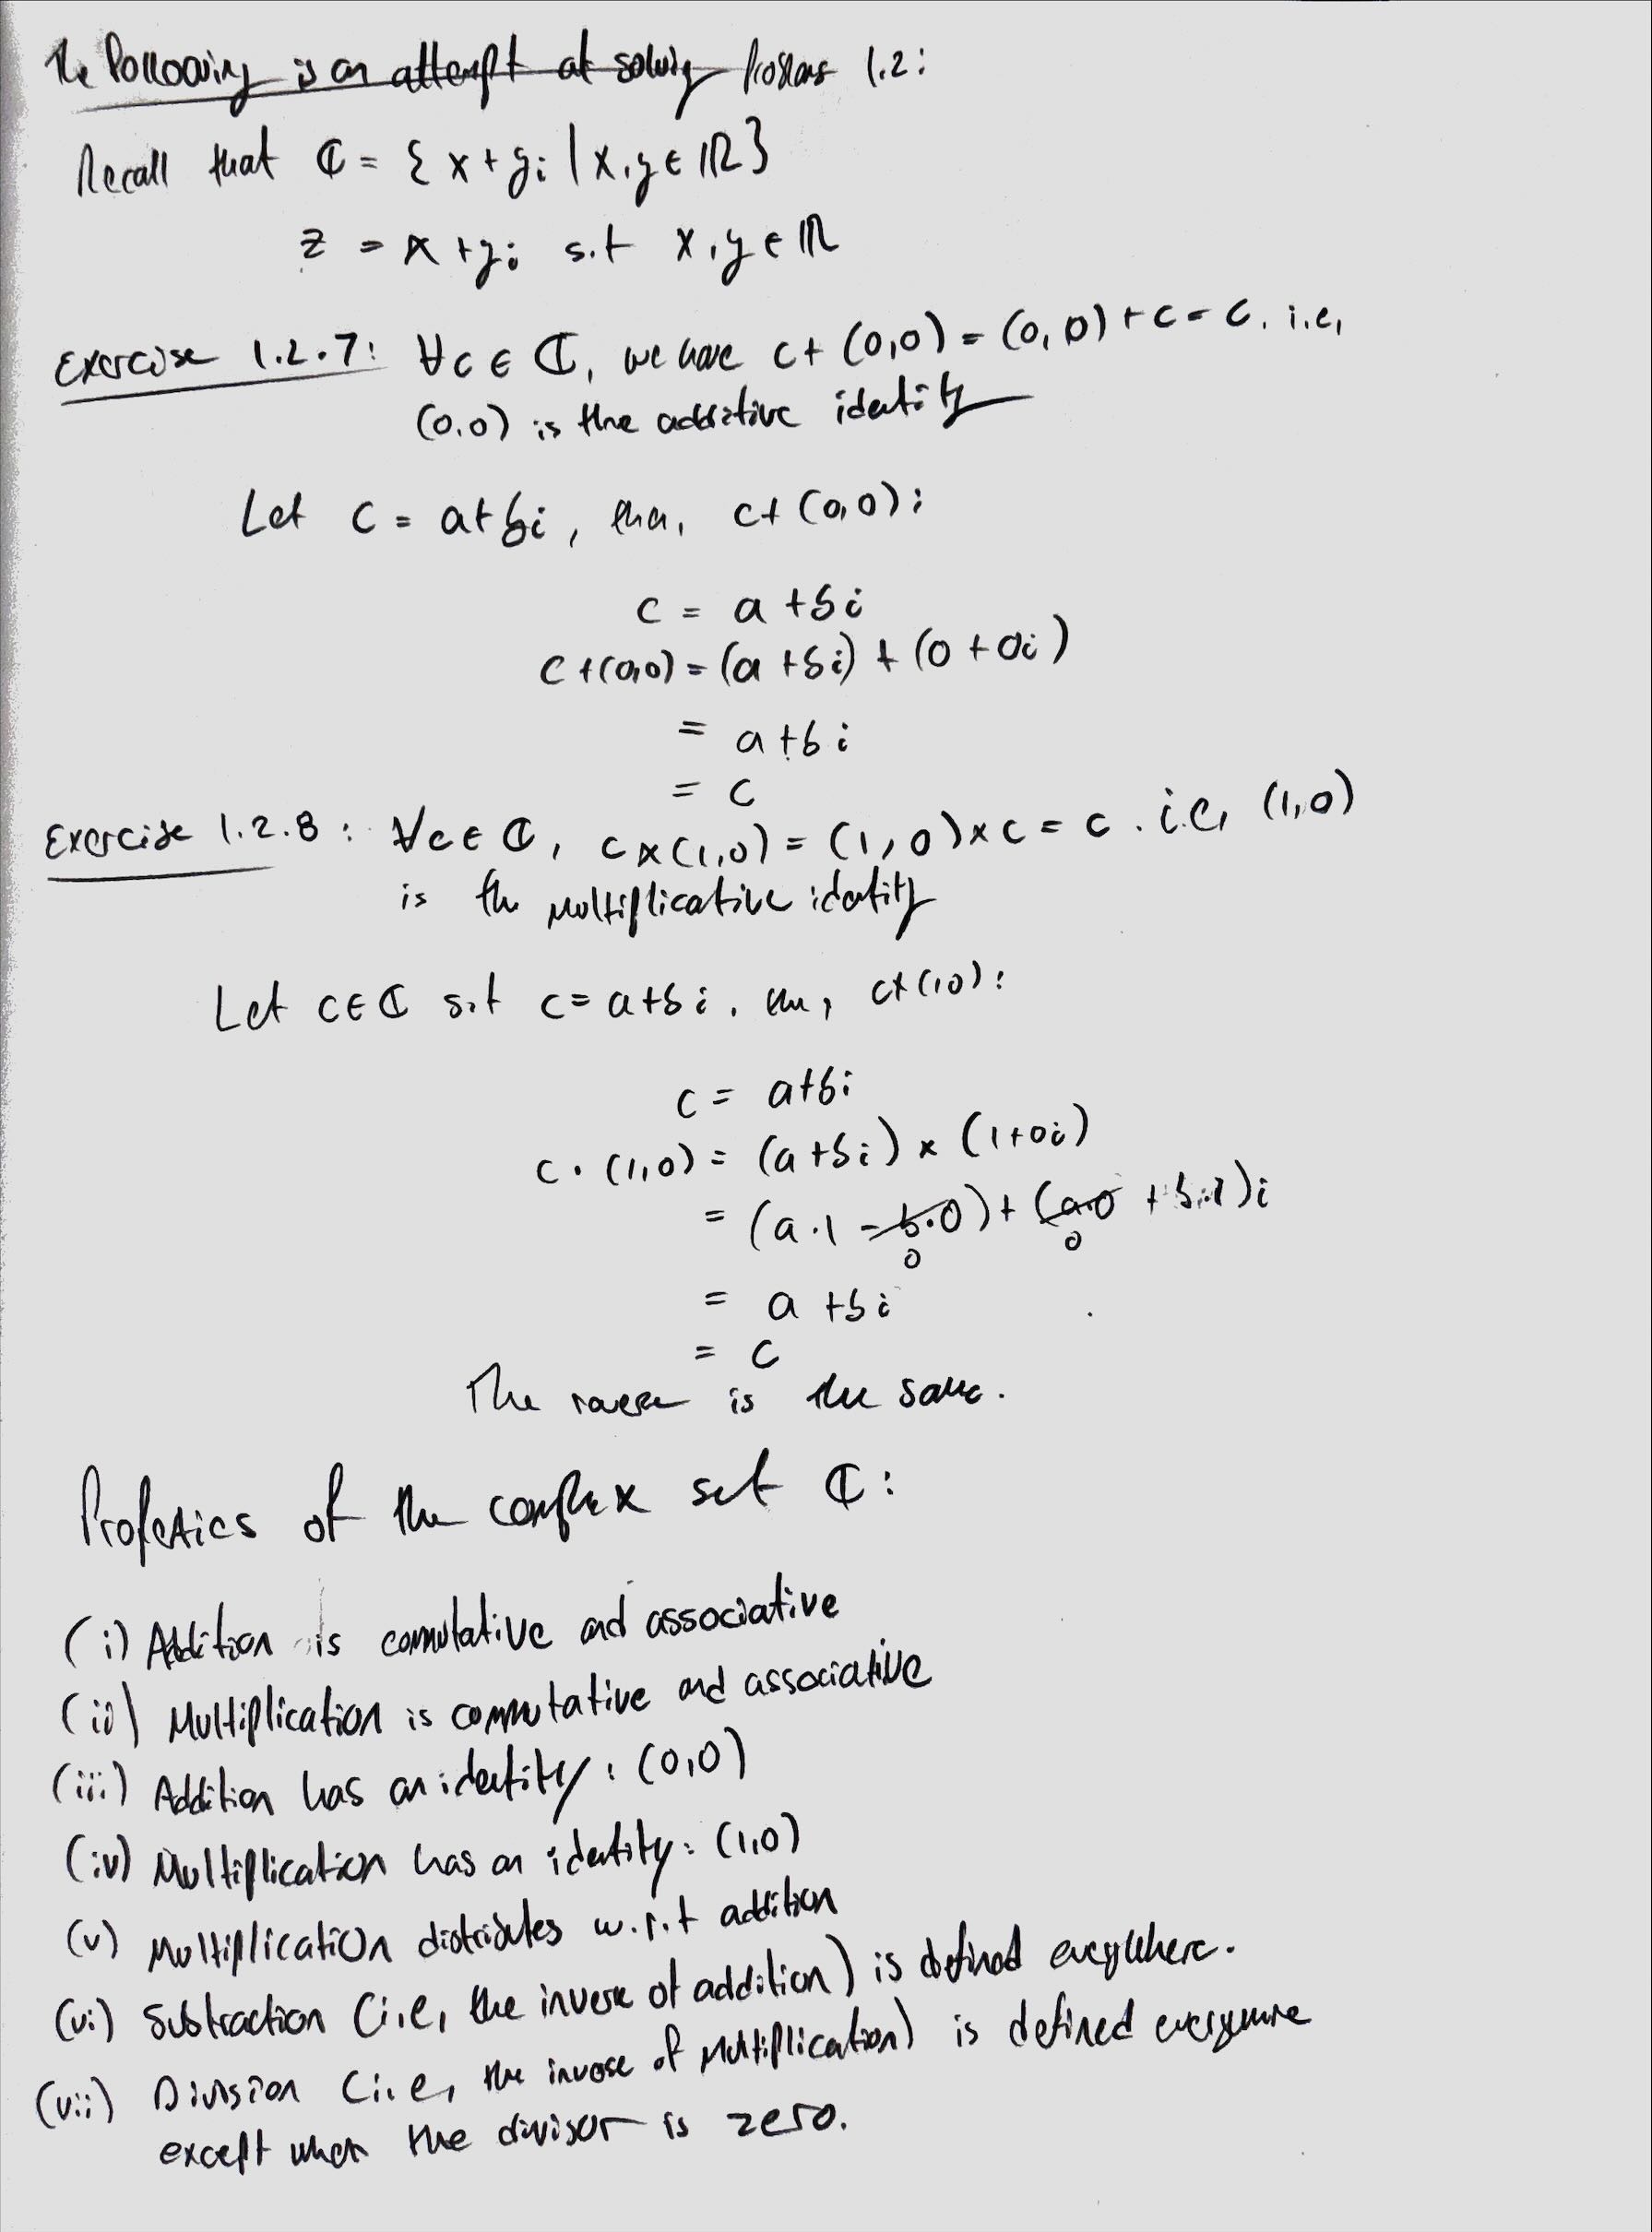 The following is an attempt at solving problems 1.2:
Recall that ℂ = { x + yi | x, y ∈ ℝ }
z = x + yi s.t x, y ∈ ℝ
Exercise 1.2.7: ∀c ∈ ℂ, we have c + (0,0) = (0,0) + c = c. i.e,
(0,0) is the additive identity
Let c = a + bi, then, c + (0,0):
c = a + bi
c + (0,0) = (a + bi) + (0 + 0i)
= a + bi
= c
Exercise 1.2.8: ∀c ∈ ℂ, c × (1,0) = (1,0) × c = c. i.e, (1,0)
is the multiplicative identity
Let c ∈ ℂ s.t c = a + bi. then, c × (1,0):
c = a + bi
c · (1,0) = (a + bi) × (1 + 0i)
= (a·1 - b·0) + (a·0 + b·1)i
0 0
= a + bi
= c
The reverse is the same.
Properties of the complex set ℂ:
(i) Addition is commutative and associative
(ii) Multiplication is commutative and associative
(iii) Addition has an identity: (0,0)
(iv) Multiplication has an identity: (1,0)
(v) Multiplication distributes w.r.t addition
(vi) Subtraction (i.e, the inverse of addition) is defined everywhere.
(vii) Division (i.e, the inverse of multiplication) is defined everywhere
except when the divisor is zero.